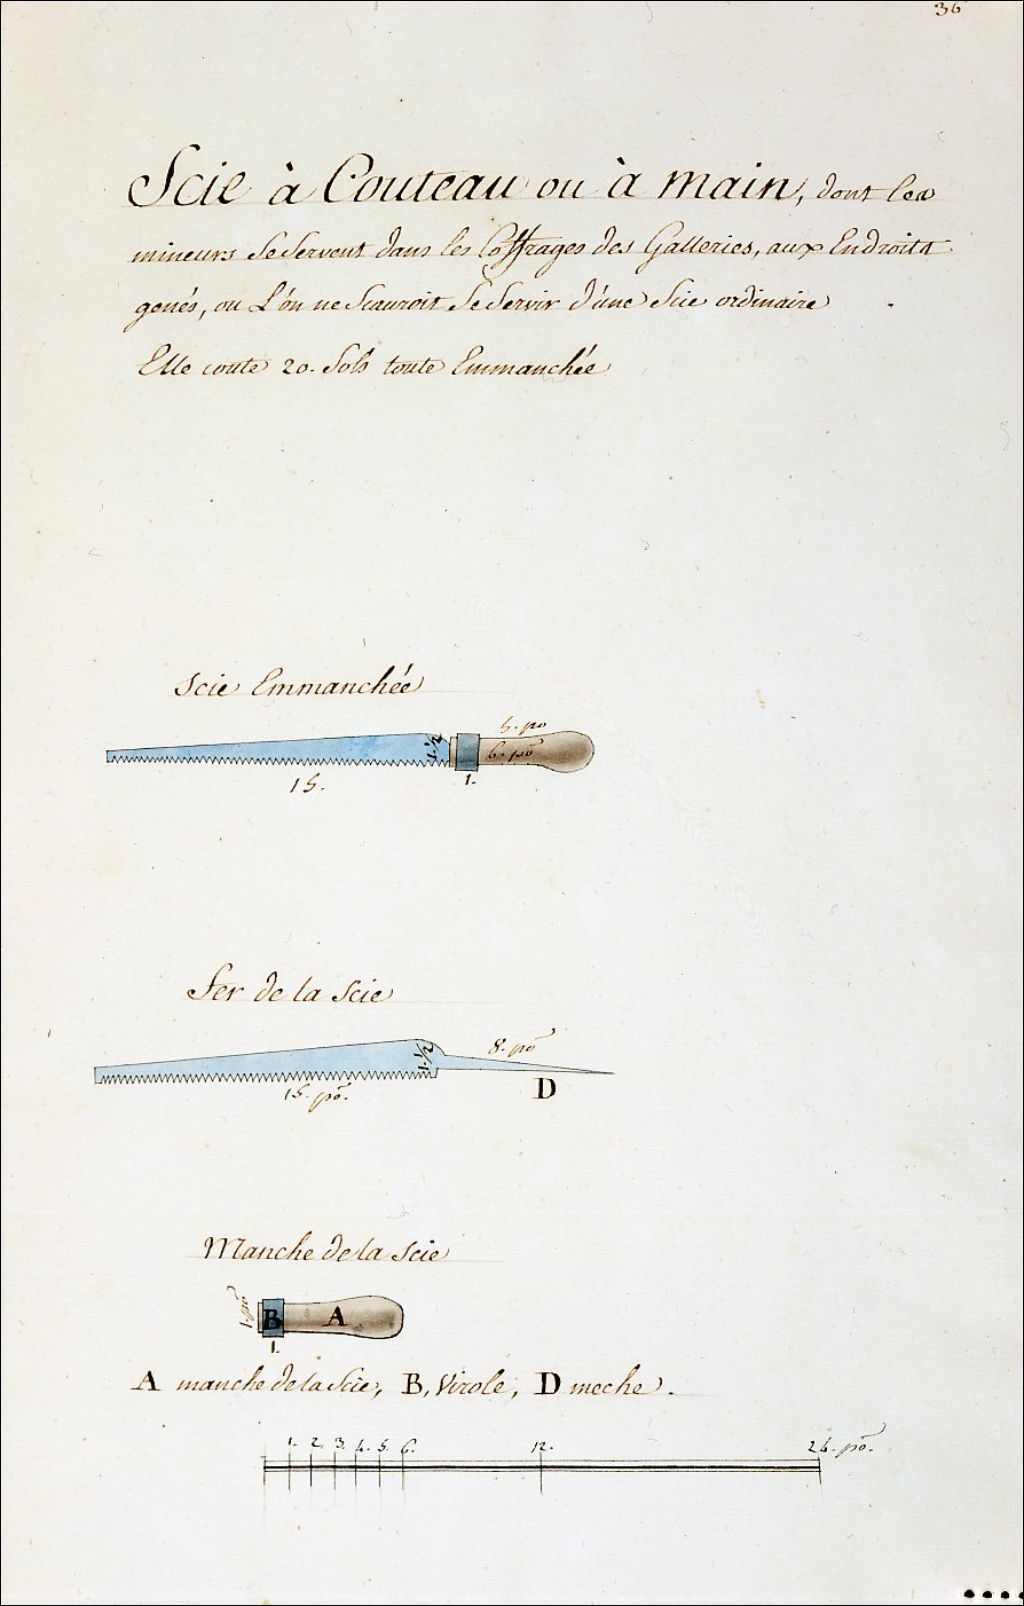 36
Scie à Couteau ou à main, dont les
mineurs se servent dans les Coffrages des Galleries, aux Endroits
genés, ou L'ón ne Scauroit se servir d'úne Scie ordinaire
Elle coute 20. Sols toute Emmanchée
Scie Emmanchée
5. po
1.½ 6. po
15. 1.
Fer de la Scie
1.½ 8. po
15. po. D
Manche de la Scie
1. po B A
1.
A manche de la Scie, B, Virole, D meche.
1. 2. 3. 4. 5. 6. 12. 24. po.